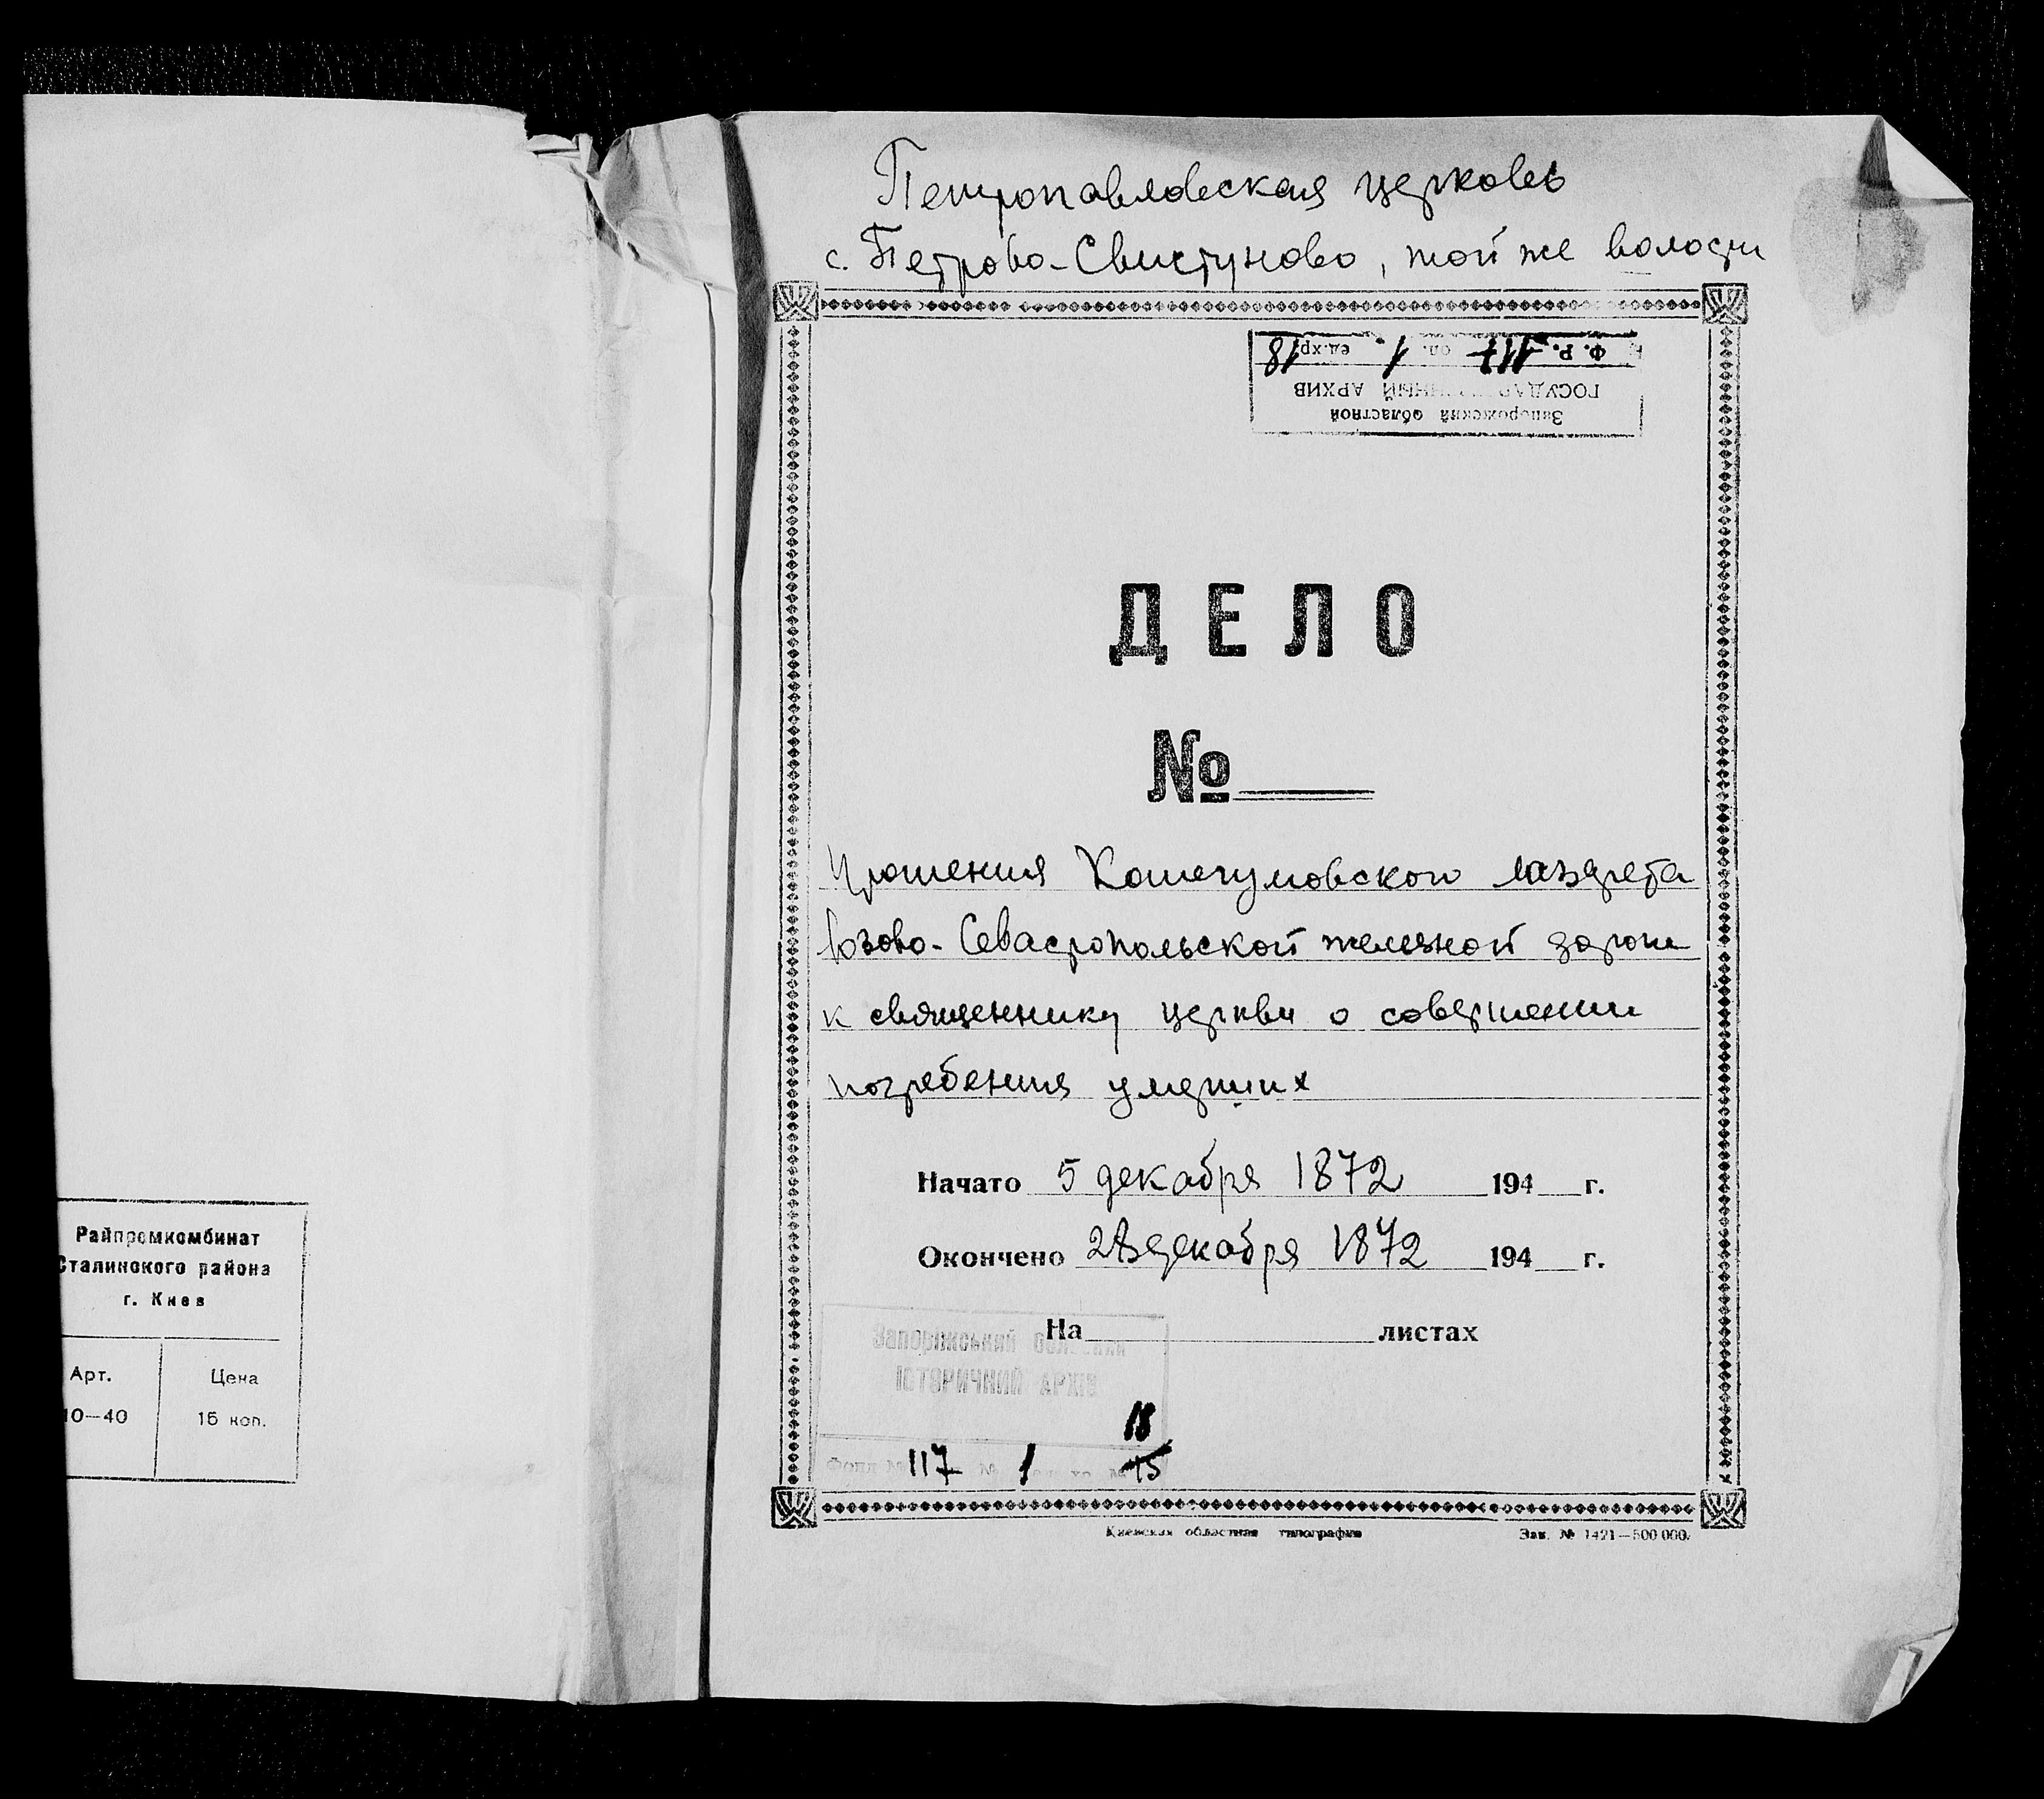 Петропавловская церковь
с. Петрово-Свистуново, той же волости
Ф. Р. 117 оп. 1 ед.хр. 18
АРХИВ
Запорожский областной
ДЕЛО
№
Прошения лазарета
Лозово-Севастопольской железной дороги
к священнику церкви о совершении
погребения умерших
Начато 5 декабря 1872 194 г.
Окончено 28 декабря 1872 194 г.
На листах
Запорізький обласний
ІСТОРИЧНИЙ АРХІВ
18
Фонд № 117 № 1 № 15
Киевская областная типография Зак. № 1421—500 000.
Райпромкомбинат
Сталинского района
г. Киев
Арт. Цена
10—40 15 коп.